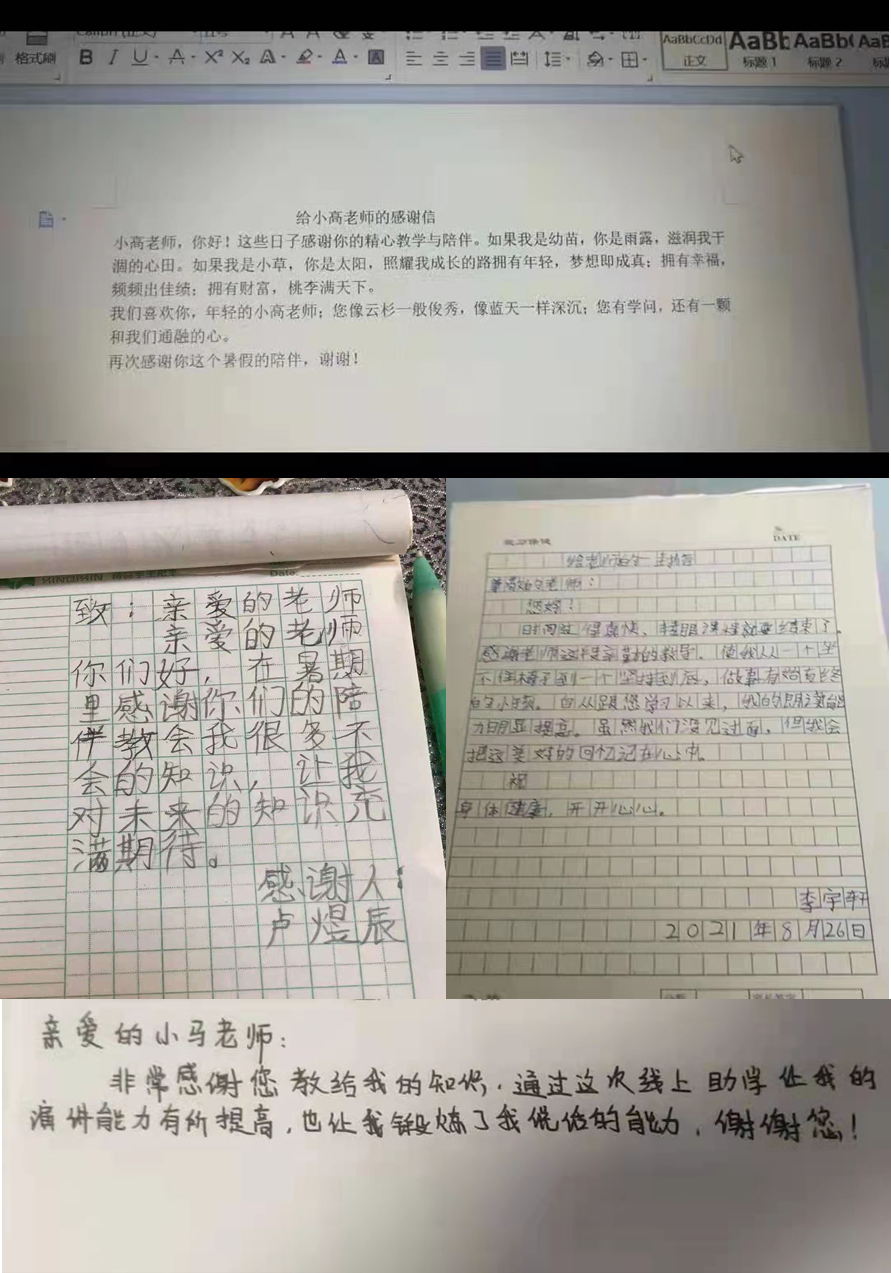 格式刷
B I U A X² X₂ A A A
AaBbCcDd AaBb AaBb( AaBb
正文 标题 1 标题 2
给小高老师的感谢信
小高老师，你好！这些日子感谢你的精心教学与陪伴。如果我是幼苗，你是雨露，滋润我干
涸的心田。如果我是小草，你是太阳，照耀我成长的路拥有年轻，梦想即成真；拥有幸福，
频频出佳绩；拥有财富，桃李满天下。
我们喜欢你，年轻的小高老师；您像云杉一般俊秀，像蓝天一样深沉；您有学问，还有一颗
和我们通融的心。
再次感谢你这个暑假的陪伴，谢谢！
Date:
致：亲爱的老师
亲爱的老师
你们好，在暑期
里感谢你们的陪
伴教会我很多不
会的知识，让我
对未来的知识充
满期待。
感谢人：
卢煜辰
DATE
给老师的一封信
老师：
您好！
时间过得真快，结束了。
感谢老师这段辛勤的教导。使我从一个坐
不住到一个坚持到底，做事有始有终
的小孩。自从跟您学习以来，我的能
力明显提高。虽然我们没见过面，但我会
把这美好的回忆记在心中。
祝
身体健康，开开心心。
李宇轩
2021年8月26日
亲爱的小马老师：
非常感谢您教给我的知识，通过这次线上助学让我的
演讲能力有所提高，也让我锻炼了我说话的能力，谢谢您！